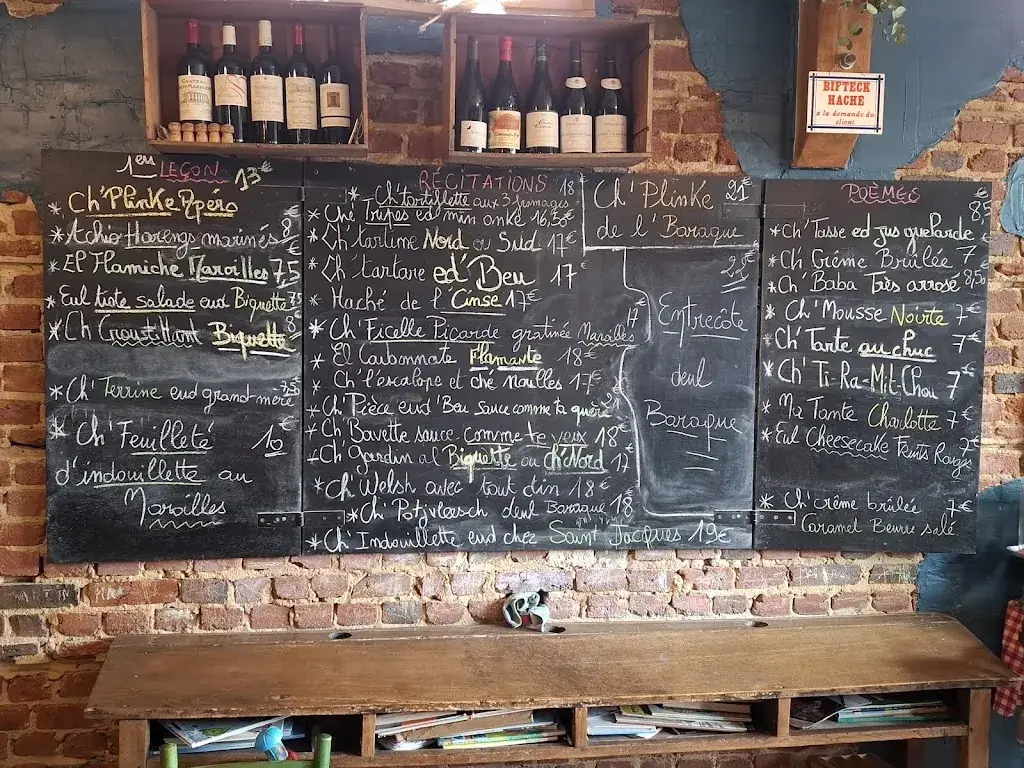 BIFTECK
HACHÉ
a la demande du
client
1ers LEÇON
Ch'Plinke Apéro 13€
* Achio Harengs marinés 8€
* El Flamiche Maroilles 7,5
* Eul tiote salade eud Biquette 7,5
* Ch Croustillant Biquette 8€
* Ch' Terrine eud grand-mère 7,5€
* Ch' Feuilleté 10€
d'indouillette au
Maroilles
RÉCITATIONS
* Ch'tartiflette aux 3 fromages 18
* Ché Tripes ed min onke 16,50€
* Ch'tartine Nord ou Sud 17€
* Ch'tartare ed'Beu 17€
* Haché de l'Cinse 17€
* Ch'Ficelle Picarde gratinée Maroilles 17€
* El Carbonnate Flamante 18€
* Ch'l'escalope et ché Moulles 17€
+ Ch'Pièce eud'Beu sauce comme ta quère
+ Ch'Bavette sauce comme te veux 18€
+ Ch Gardin al Biquette ou ch'Nord 17€
* Ch'Welsh avec tout din 18€
* Ch' Potjvleesch deul Baraque 18
* Ch'Indouillette eud chez Saint Jacques 19€
Ch'Plinke 21€
de l'Baraque
Entrecôte
deul
Baraque
POÈMES
* Ch'Tasse ed jus guelarde 8,5€
* Ch Crème Brûlée 7€
* Ch' Baba Très arrosé 8,50€
* Ch'Mousse Noirte 7€
* Ch'Tarte au chuc 7€
* Ch' Ti-Ra-Mit-Chou 7€
* Ma Tante Charlotte 7€
* Eul Cheesecake Fruits Rouges 7€
* Ch'crême brûlée 7€
Caramel Beurre salé